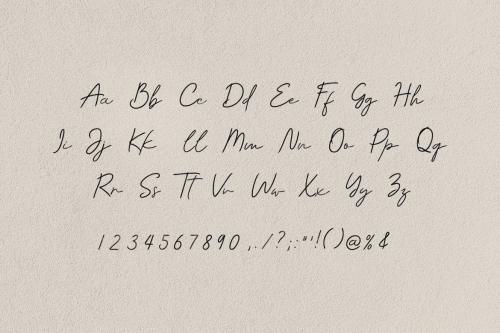 Aa Bb Cc Dd Ee Ff Gg Hh
Ii Jj Kk Ll Mm Nn Oo Pp Qq
Rr Ss Tt Vv Ww Xx Yy Zz
1 2 3 4 5 6 7 8 9 0 ,./?;:"'!()@%&